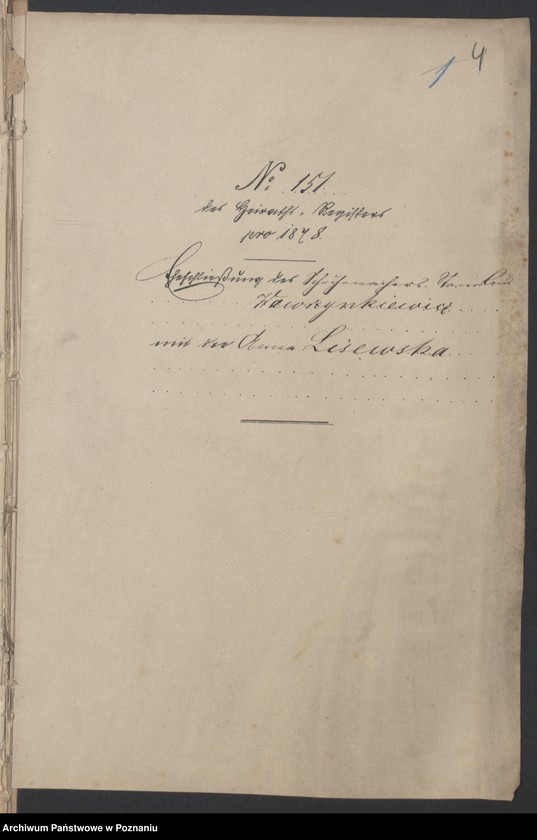 4
1
No. 151.
des Heiraths-Registers
pro 1878.
Eheschließung des Schuhmachers
Wawrzynkiewicz
mit der Anna Lisewska
Archiwum Państwowe w Poznaniu